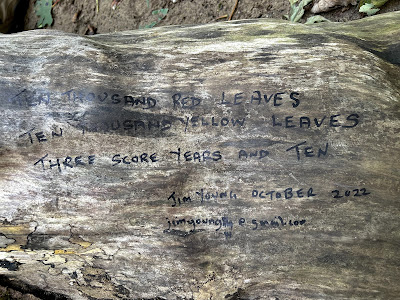 TEN THOUSAND RED LEAVES
TEN THOUSAND YELLOW LEAVES
THREE SCORE YEARS AND TEN
JIM YOUNG OCTOBER 2022